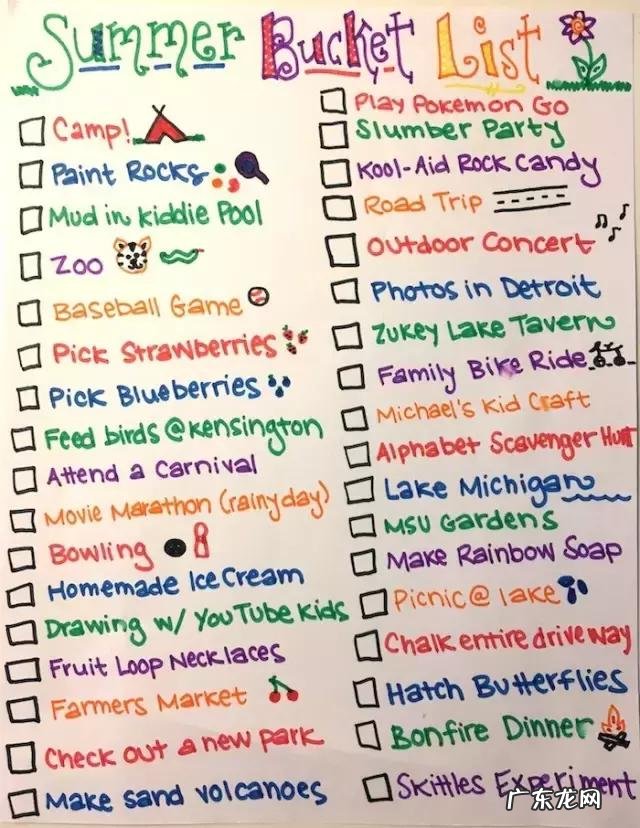 Summer Bucket List
Camp!
Paint Rocks
Mud in kiddie Pool
Zoo
Baseball Game
Pick Strawberries
Pick Blueberries
Feed birds @ Kensington
Attend a Carnival
Movie Marathon (rainy day)
Bowling
Homemade Ice Cream
Drawing w/ YouTube Kids
Fruit Loop Necklaces
Farmers Market
Check out a new park
Make sand volcanoes
Play Pokemon Go
Slumber Party
Kool-Aid Rock Candy
Road Trip
Outdoor Concert
Photos in Detroit
Zukey Lake Tavern
Family Bike Ride
Michael's Kid Craft
Alphabet Scavenger Hunt
Lake Michigan
MSU Gardens
Make Rainbow Soap
Picnic @ lake
Chalk entire driveway
Hatch Butterflies
Bonfire Dinner
Skittles Experiment
广东龙网